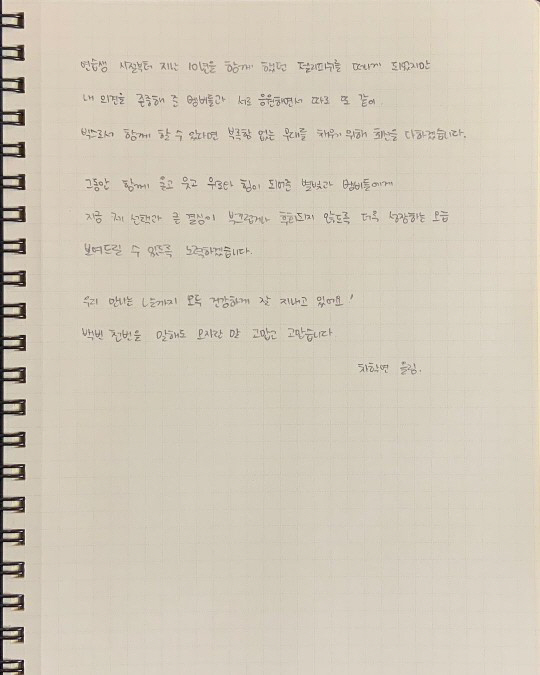 연습생 시절부터 지난 10년을 함께 했던 젤리피쉬를 떠나게 되었지만
내 의견을 존중해 준 멤버들과 서로 응원하면서 따로 또 같이
빅스로서 함께 할 수 있다면 부족함 없는 무대를 채우기 위해 최선을 다하겠습니다.
그동안 함께 울고 웃고 위로와 힘이 되어준 별빛과 멤버들에게
지금 제 선택과 큰 결심이 부끄럽거나 후회되지 않도록 더욱 성장하는 모습
보여드릴 수 있도록 노력하겠습니다.
우리 만나는 날까지 모두 건강하게 잘 지내고 있어요!
백번 천번을 말해도 모자란 말 고맙고 고맙습니다
차학연 올림.